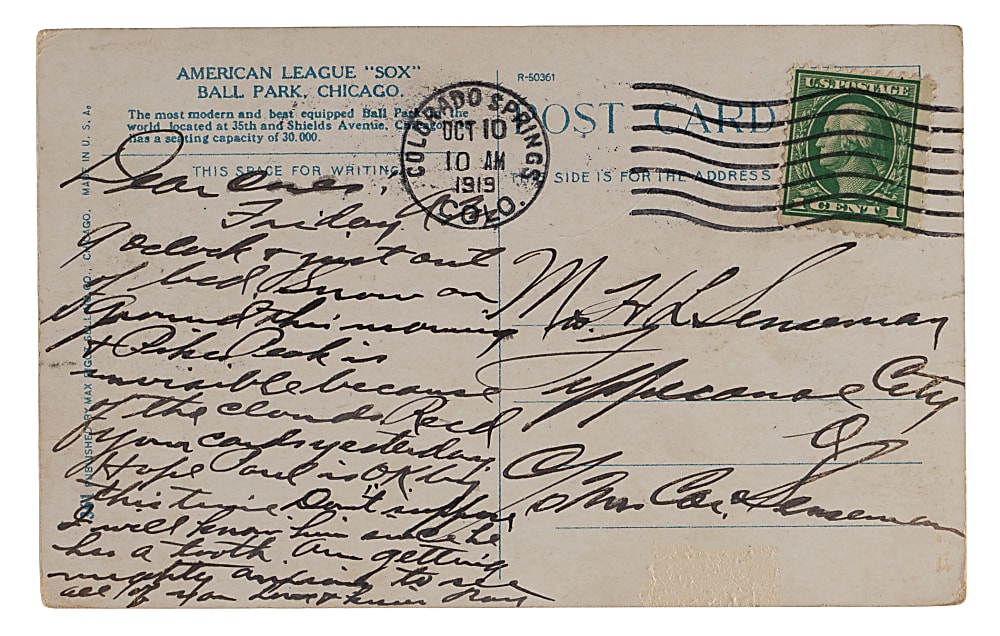 AMERICAN LEAGUE "SOX"
BALL PARK, CHICAGO.
The most modern and best equipped Ball Park in the
world, located at 35th and Shields Avenue, Chicago
has a seating capacity of 30.000.
THIS SPACE FOR WRITING
R-50361
POST CARD
THIS SIDE IS FOR THE ADDRESS
COLORADO SPRINGS
OCT 10
10 AM
1919
COLO.
U.S. POSTAGE
1 CENT 1
MADE IN U. S. A.
PUBLISHED BY MAX RIGOT SELLING CO., CHICAGO.
Dear Ones,
Friday
9 oclock & just out
of bed Snow on
ground this morning
& Pikes Peak is
invisible because
of the clouds Recd
your cards yesterday.
Hope Paul is OK by
this time Don't suppose
I will know him since he
has a tooth Am getting
mighty anxious to see
all of you Love & kisses
Mrs. H L Senseman
Tippecanoe City
O
c/o Mrs Senseman